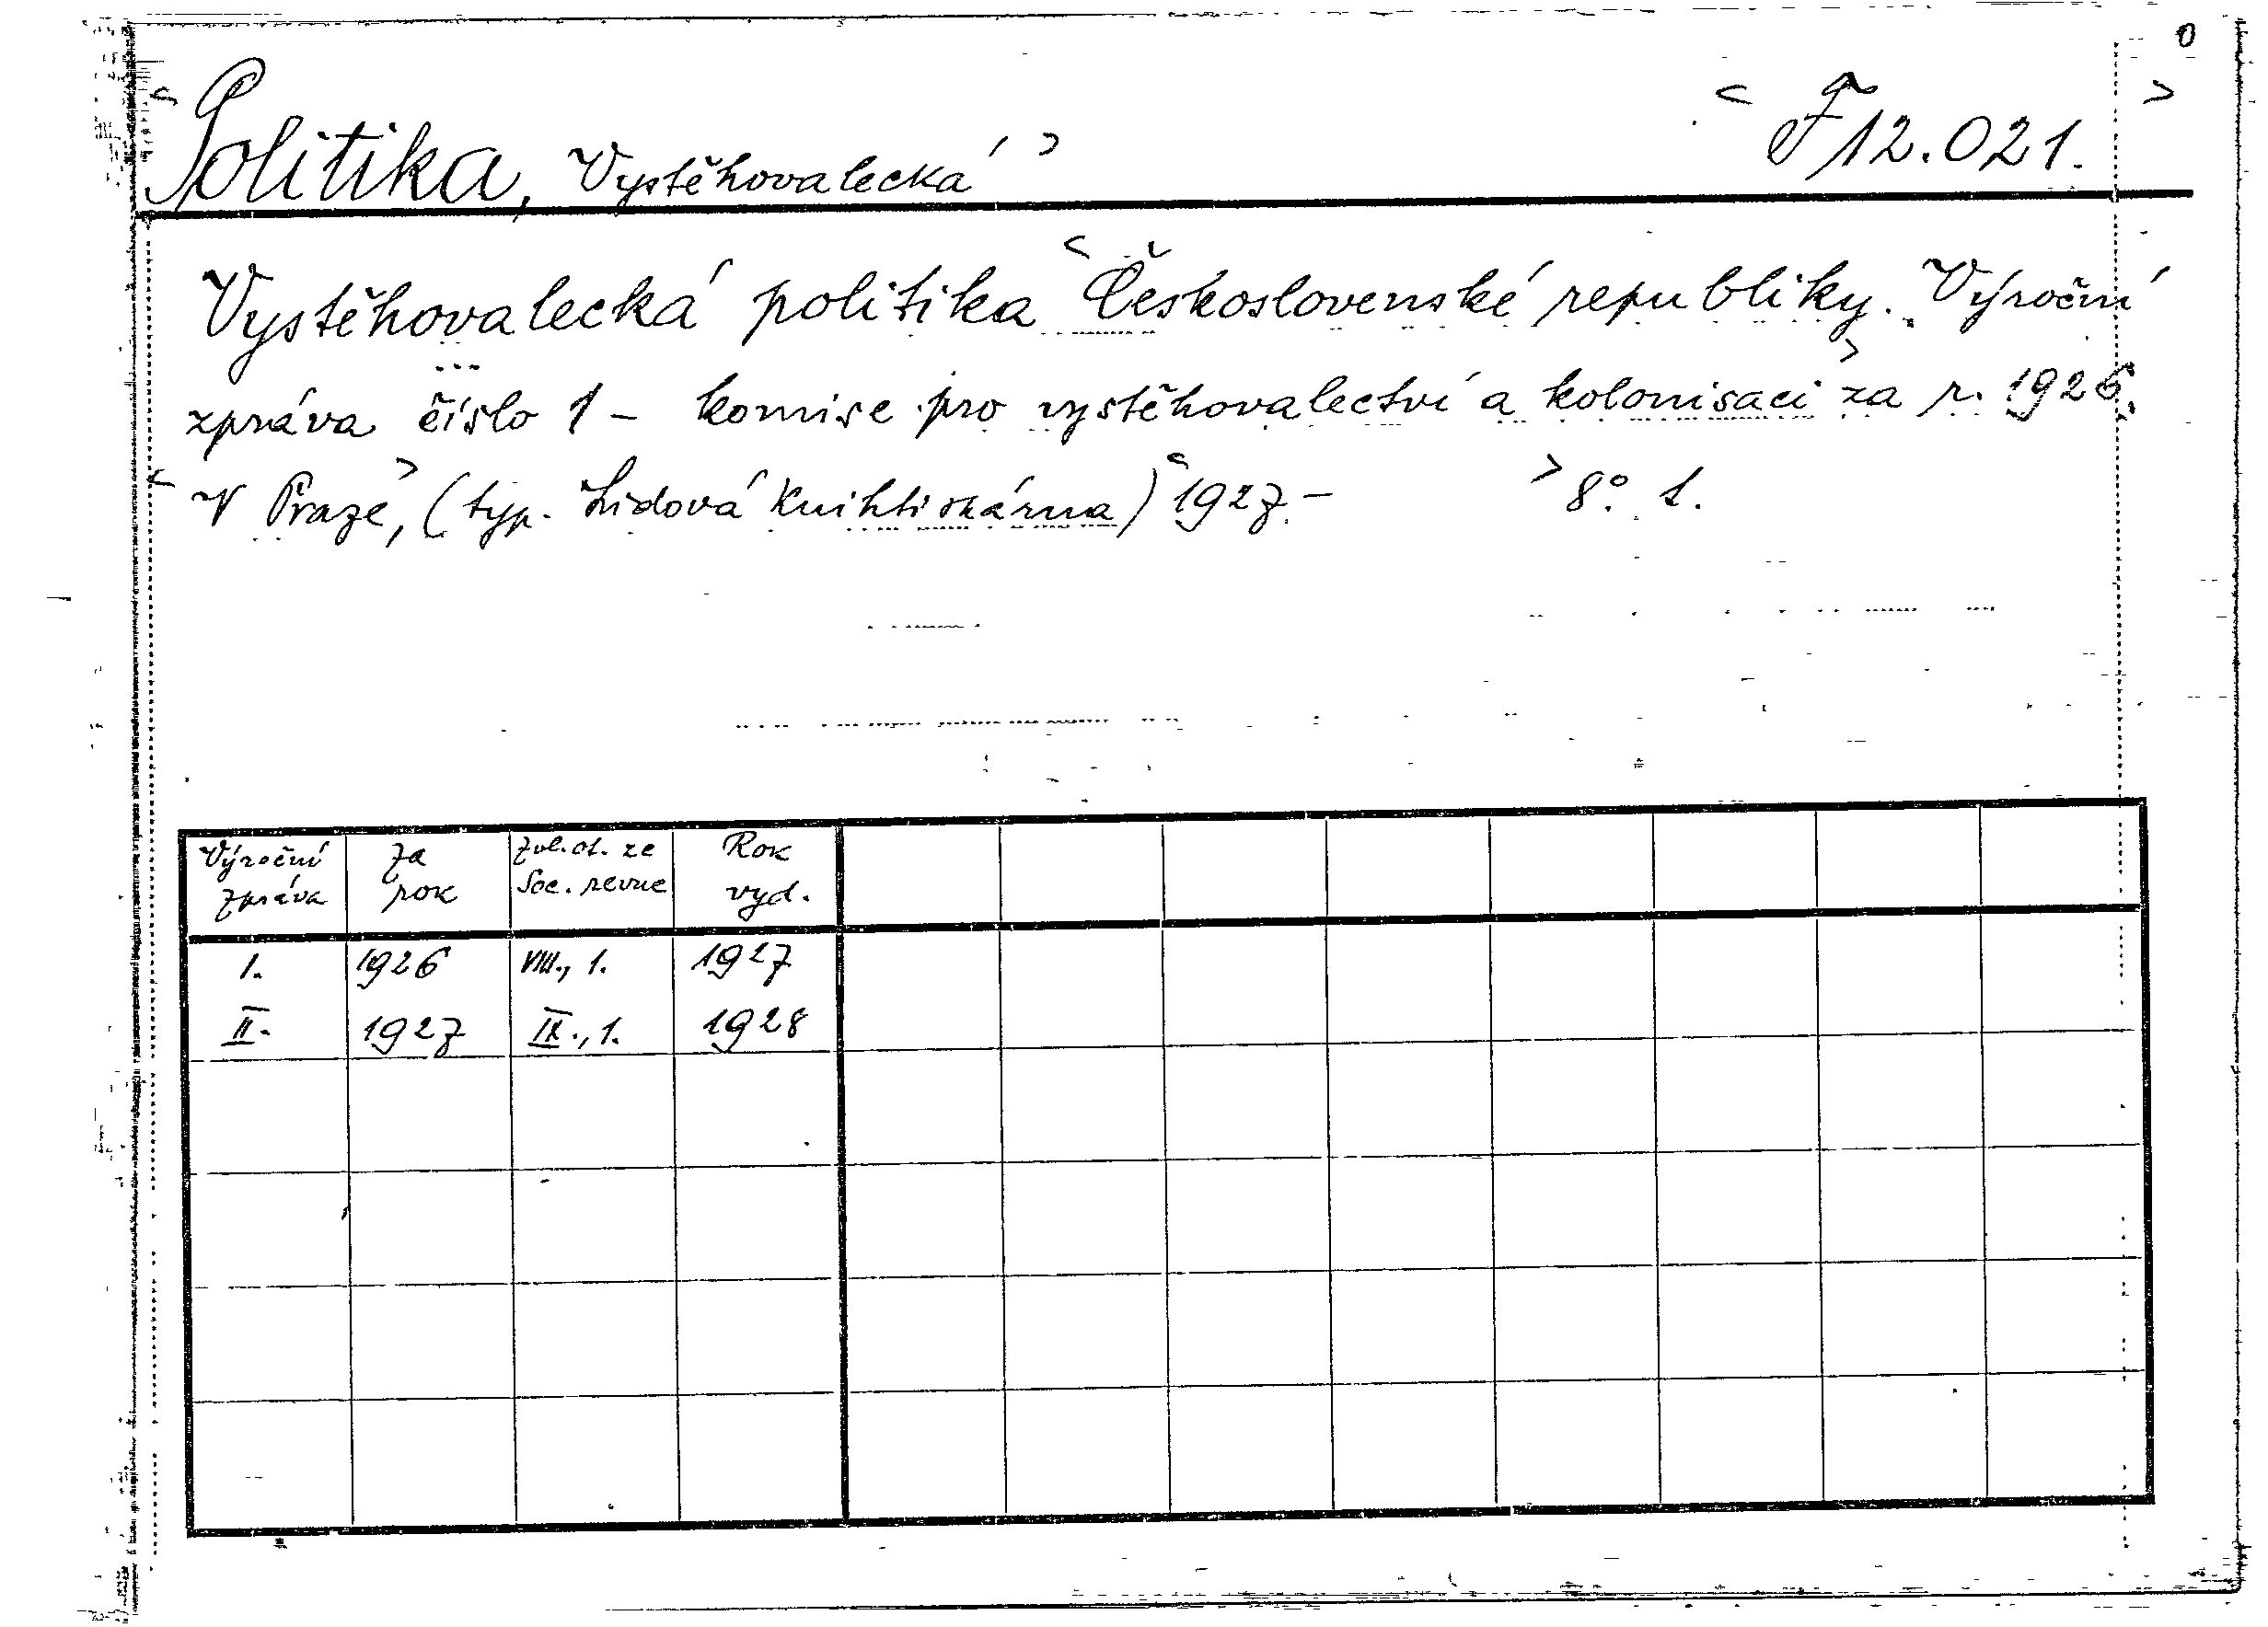 0
< Politika, Vystěhovalecká > < F 12.021. >
Vystěhovalecká politika < Československé republiky. Výroční
zpráva číslo 1 - komise pro vystěhovalectví a kolonisaci > za r. 1926.
< V Praze, > (typ. Lidová knihtiskárna) < 1927 - > 8°. 1.
Výroční zpráva za rok zvl. ot. ze Soc. revue Rok vyd.
I. 1926 VIII., 1. 1927
II. 1927 IX., 1. 1928